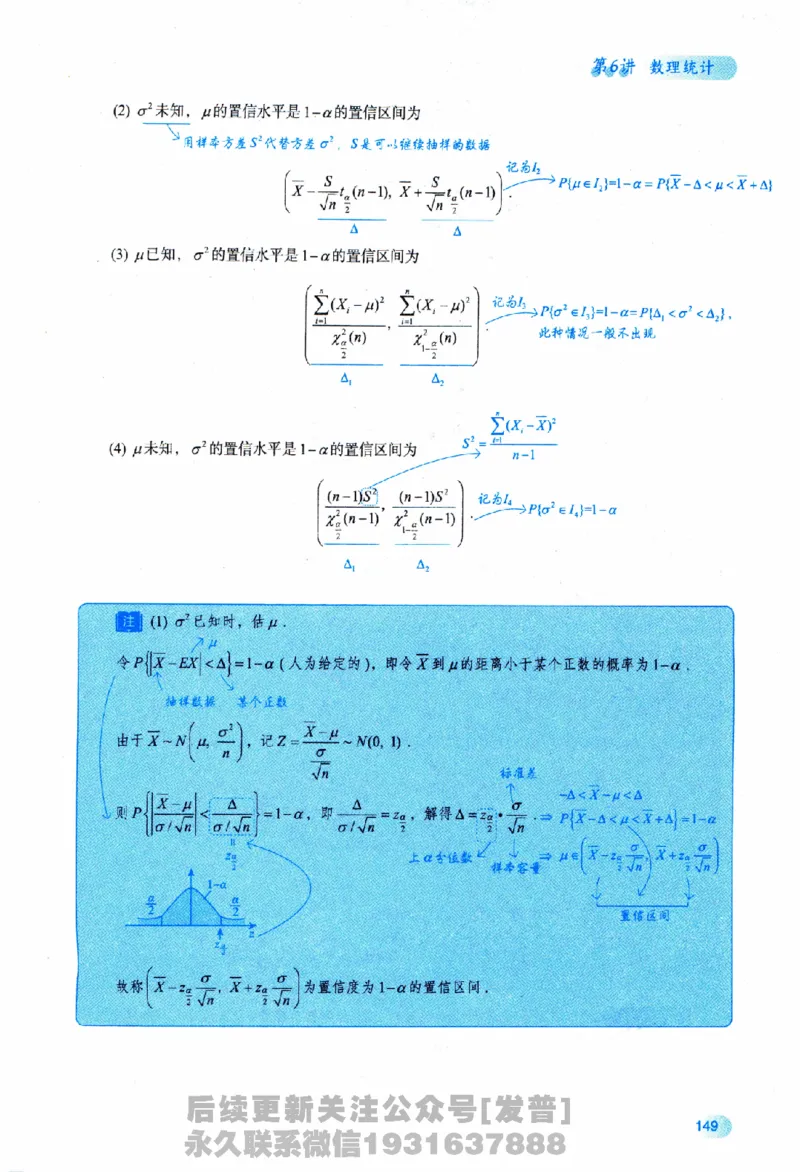 第6讲 数理统计
(2) σ²未知，μ的置信水平是1-α的置信区间为
用样本方差S²代替方差σ²，S是可以继续抽样的数据
(X̄ - S/√n t_{α/2}(n-1), X̄ + S/√n t_{α/2}(n-1)).
记为I₂ P{μ∈I₂}=1-α=P{X̄-Δ<μ<X̄+Δ}
Δ Δ
(3) μ已知，σ²的置信水平是1-α的置信区间为
(∑_{i=1}^{n}(X_i-μ)²/χ²_{α/2}(n), ∑_{i=1}^{n}(X_i-μ)²/χ²_{1-α/2}(n)).
记为I₃ P{σ²∈I₃}=1-α=P{Δ₁<σ²<Δ₂},
此种情况一般不出现
Δ₁ Δ₂
(4) μ未知，σ²的置信水平是1-α的置信区间为
S²=∑_{i=1}^{n}(X_i-X̄)²/(n-1)
((n-1)S²/χ²_{α/2}(n-1), (n-1)S²/χ²_{1-α/2}(n-1)).
记为I₄ P{σ²∈I₄}=1-α
Δ₁ Δ₂
注 (1) σ²已知时，估μ.
μ
令P{|X̄-EX|<Δ}=1-α(人为给定的)，即令X̄到μ的距离小于某个正数的概率为1-α.
抽样数据 某个正数
由于X̄~N(μ, σ²/n)，记Z=(X̄-μ)/(σ/√n)~N(0, 1).
标准差
-Δ<X̄-μ<Δ
则P{|(X̄-μ)/(σ/√n)|<Δ/(σ/√n)}=1-α，即Δ/(σ/√n)=z_{α/2}，解得Δ=z_{α/2}·σ/√n. ⇒ P{X̄-Δ<μ<X̄+Δ}=1-α
z_{α/2}
上α分位数 样本容量 ⇒ μ∈(X̄-z_{α/2}σ/√n, X̄+z_{α/2}σ/√n)
α/2 1-α α/2
置信区间
z_{α/2} z
故称(X̄-z_{α/2}σ/√n, X̄+z_{α/2}σ/√n)为置信度为1-α的置信区间.
后续更新关注公众号[发普]
永久联系微信1931637888
149